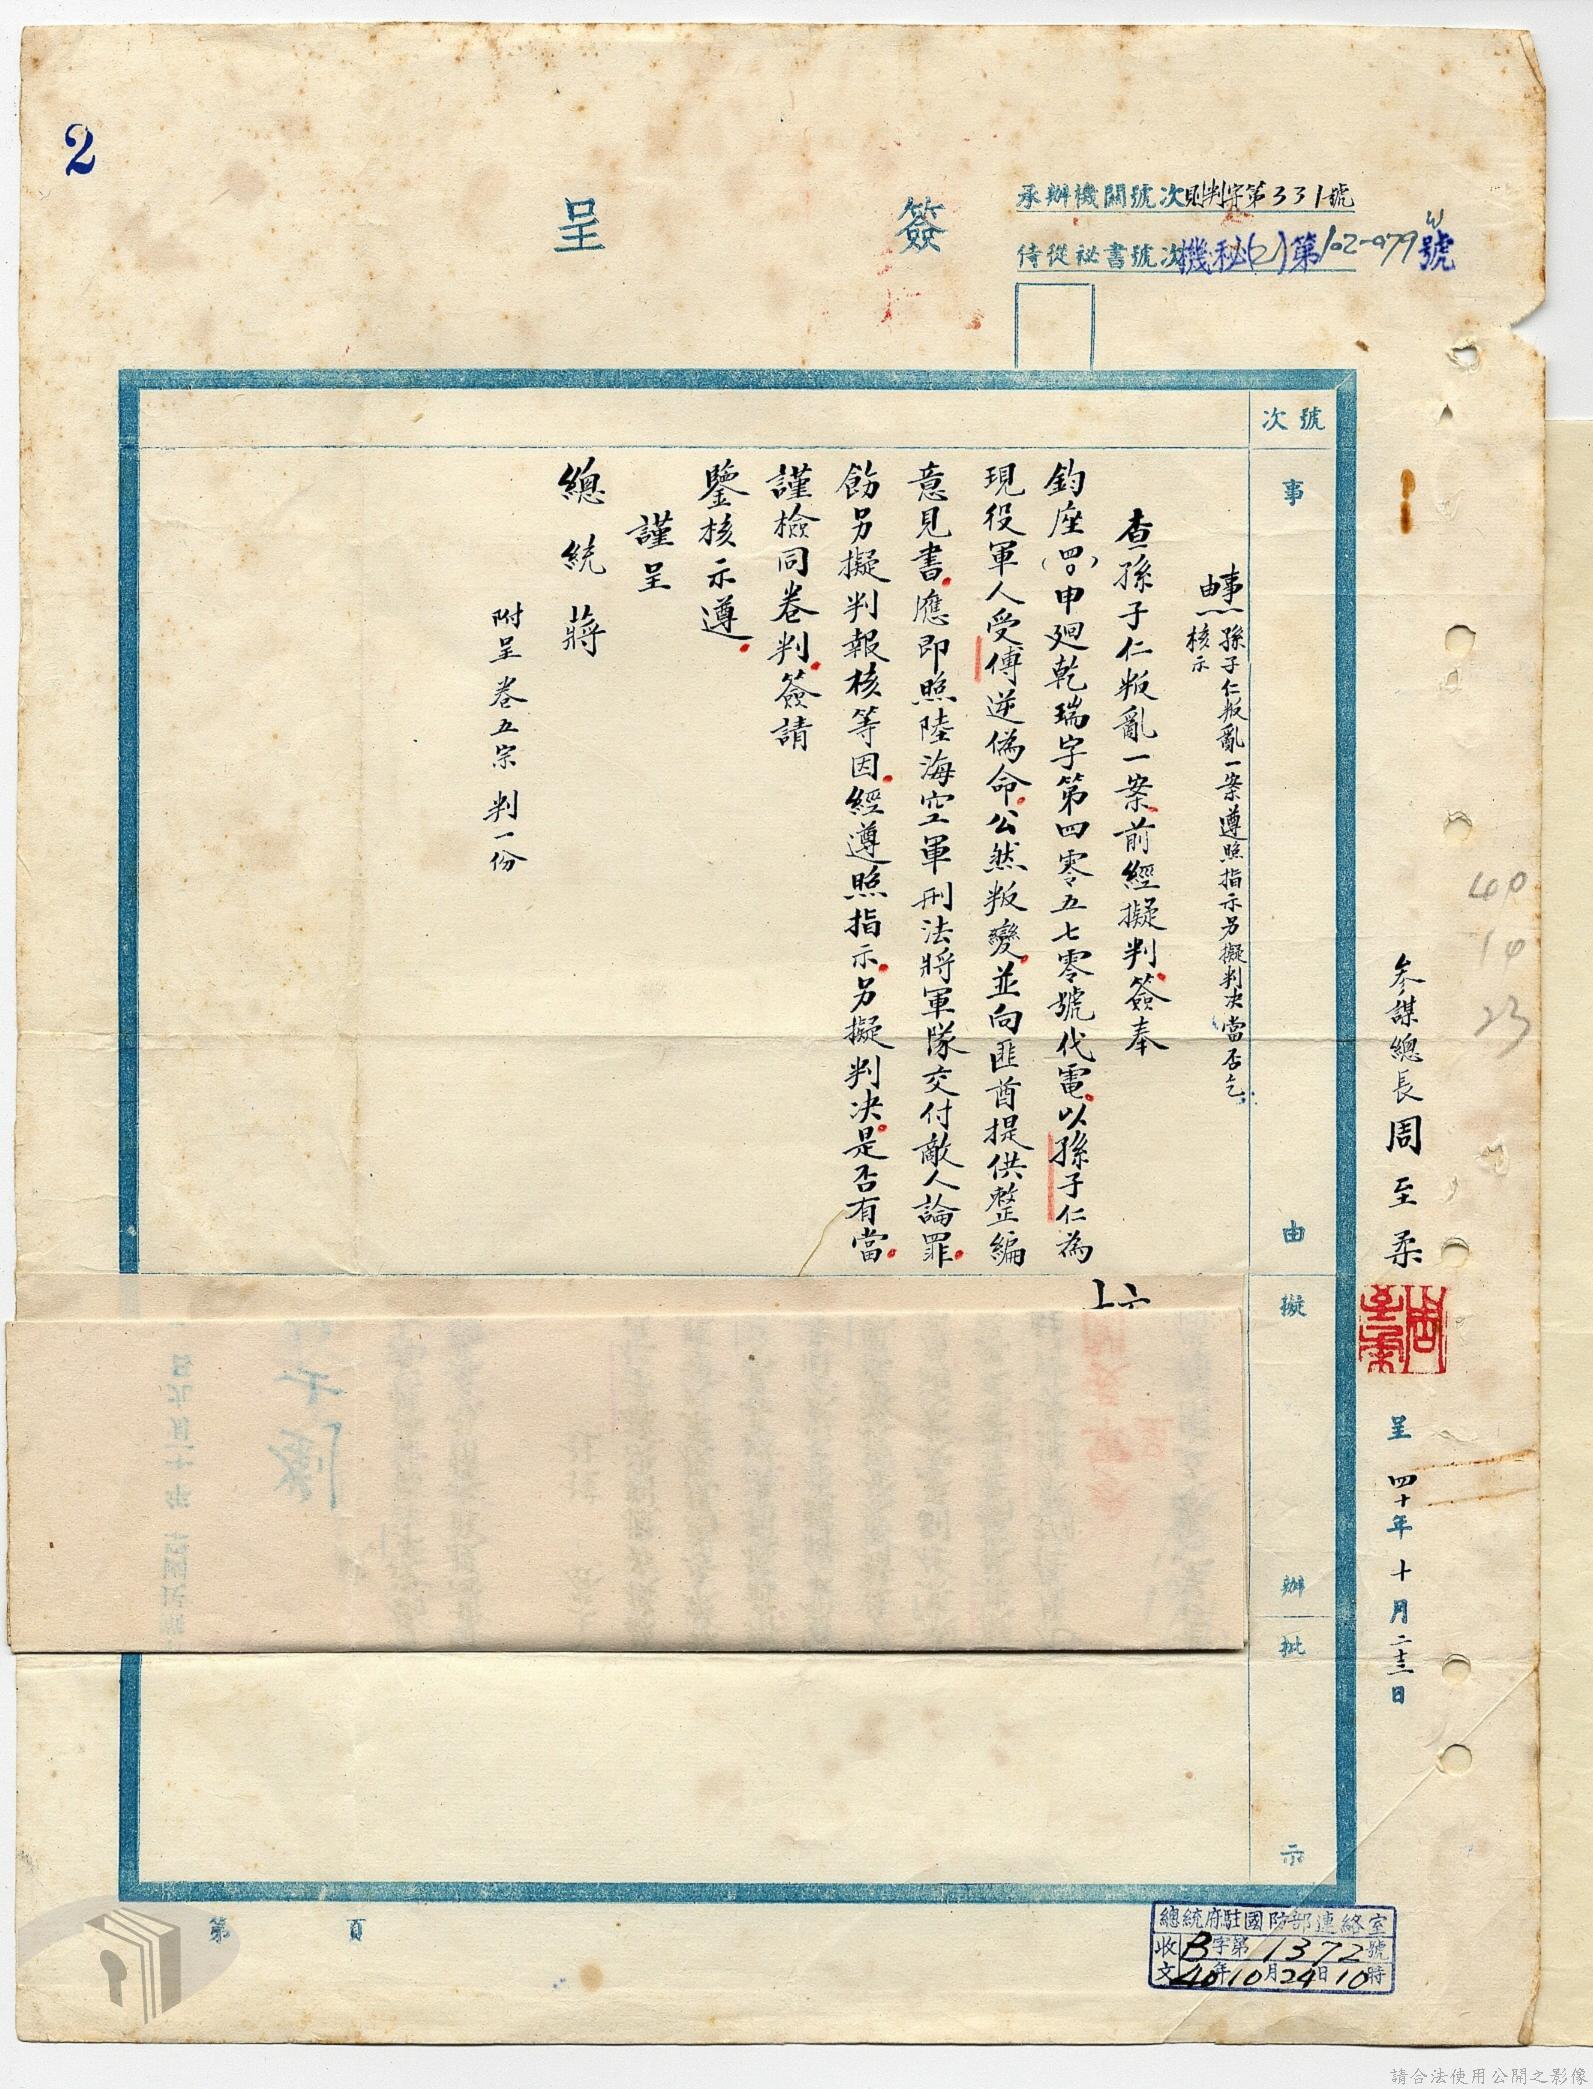 2
簽呈
承辦機關號次則判字第331號
侍從祕書號次機秘(乙)第102-979號
號次
事由
擬辦
批示
事由：孫子仁叛亂一案遵照指示另擬判决當否乞
核示
查孫子仁叛亂一案前經擬判簽奉
鈞座(四〇)申廻乾瑞字第四零五七零號代電以孫子仁為
現役軍人受傅逆偽命公然叛變並向匪酋提供整編
意見書應即照陸海空軍刑法將軍隊交付敵人論罪
飭另擬判報核等因經遵照指示另擬判决是否有當
謹檢同卷判簽請
鑒核示遵
謹呈
總統蔣
附呈卷五宗判一份
參謀總長周至柔
周至柔
呈 四十年十月二十三日
40
10
23
第 頁
總統府駐國防部連絡室
收文 B字第1372號
40年10月24日10時
請合法使用公開之影像